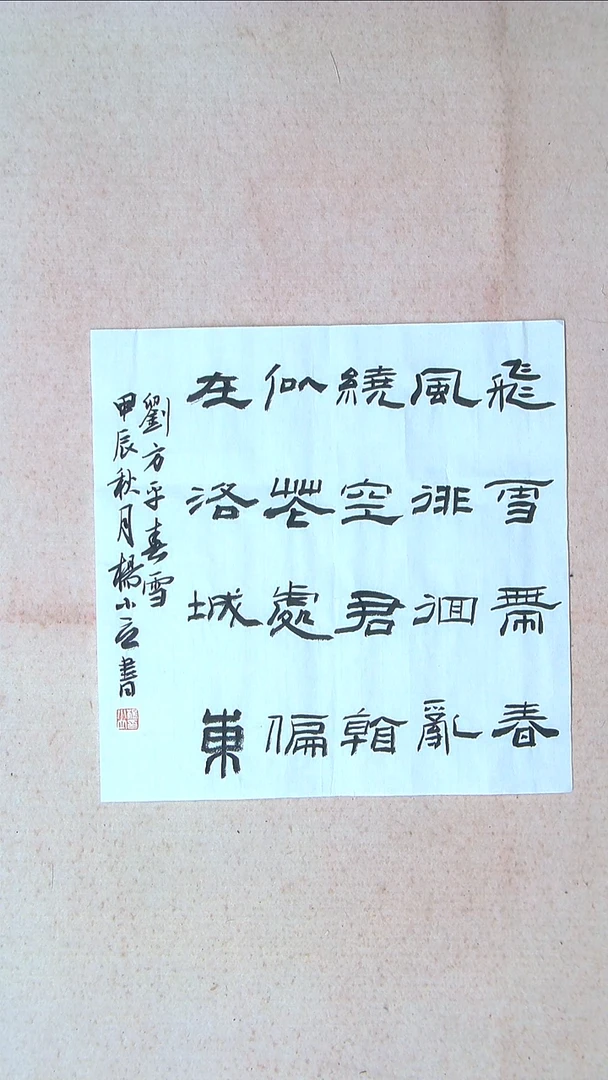 飛雪帶春
風徘徊亂
繞空君看
似花處偏
在洛城東
劉方平春雪
甲辰秋月楊小書